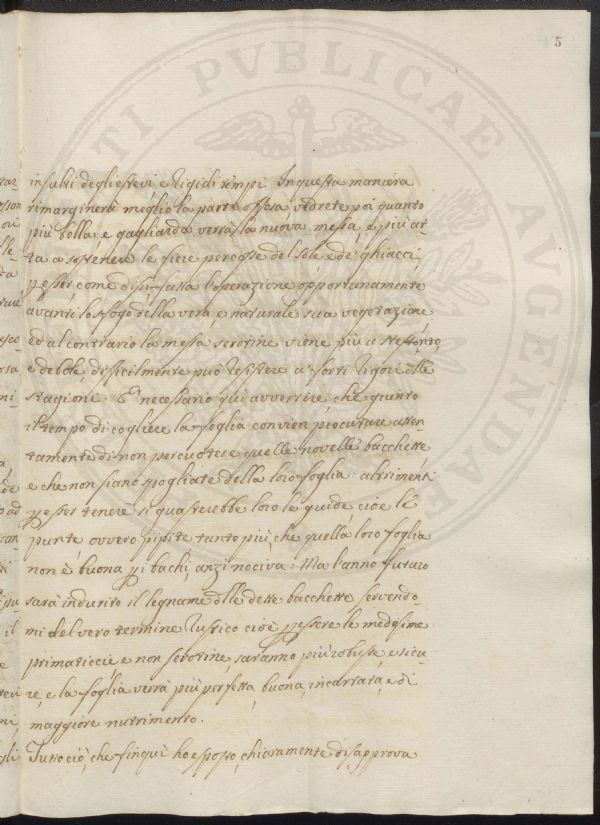 5
insulti degli estivi e rigidi tempi. In questa maniera
rimarginerà meglio la parte offesa, vedrete poi quanto
più bella, e gagliarda verrà la nuova messa, e più at-
ta a sostenere le fiere percosse del sole, e de' ghiacci
p esser come disi fatta l'operazione opportunamente
avanti lo sfogo della vera, e naturale sua vegetazione
ed al contrario la messa serotine viene più
e debole, difficilmente può resistere a' forti rigori dlle
stagioni. E' necessario qui avvertire, che giunto
il tempo di cogliere la foglia convien procurare atten-
tamente di non percuotere quelle novelle bacchette
e che non siano spogliate della loro foglia: altrimenti
p esser tenere si guasterebbe loro le guide, cioè le
punte ovvero pipite tanto più, che quella loro foglia
non è buona pi bachi, anzi nociva: Ma l'anno futuro
sarà indurito il legname dlle dette bacchette servendo-
mi del vero termine rustico cioè p essere le medesime
primaticcie, e non serotine saranno più robuste, e sicu-
re, e la foglia verrà più perfetta, buona, incartata, e di
maggiore nutrimento.
Tutto ciò, che finqui ho esposto, chiaramente disapprova
PUBLICAE